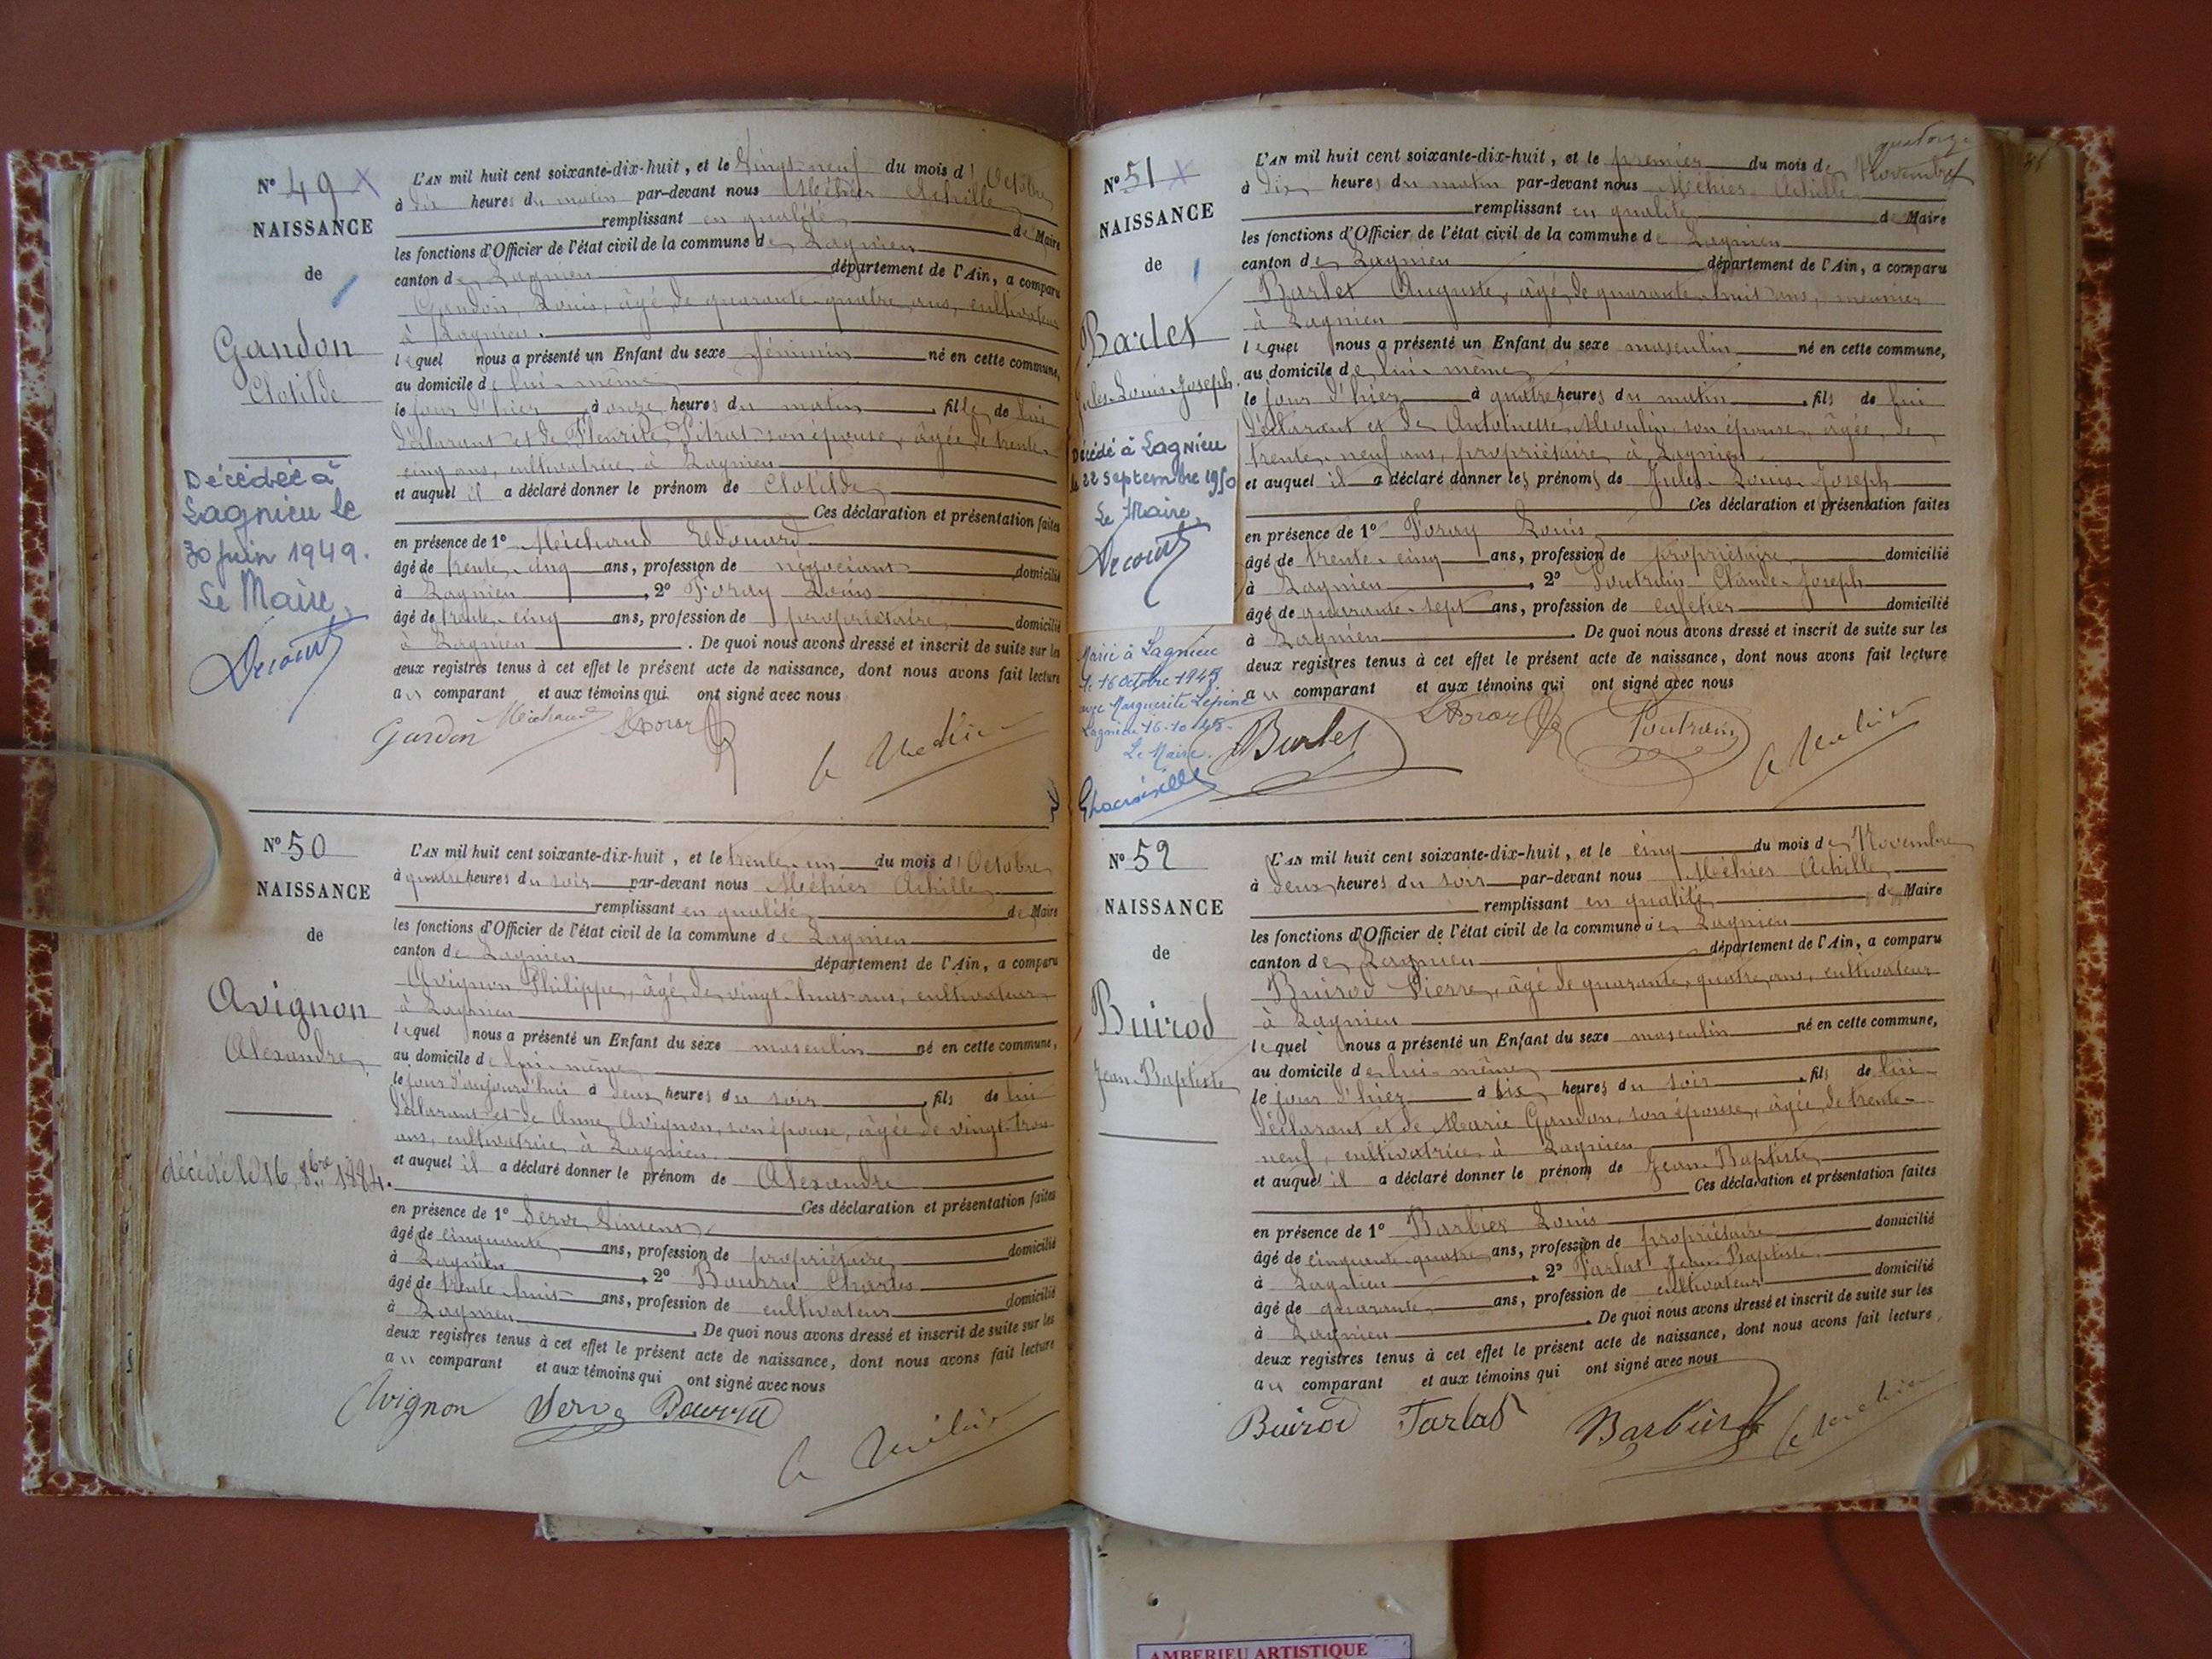 N° 49 X
NAISSANCE
de
Gandon
Clotilde
Décédée à
Lagnieu le
30 juin 1949.
Le Maire,
L'AN mil huit cent soixante-dix-huit, et le Vingt-neuf du mois d' Octobre
à dix heures du matin par-devant nous Méhier Achille
remplissant en qualité de Maire
les fonctions d'Officier de l'état civil de la commune de Lagnieu
canton de Lagnieu département de l'Ain, a comparu
Gandon, Louis, âgé de quarante-quatre ans, cultivateur
à Lagnieu.
lequel nous a présenté un Enfant du sexe féminin né en cette commune,
au domicile de lui-même
le jour d'hier à onze heures du matin, fille de lui
déclarant et de Fleurite Pitrat son épouse, âgée de trente-
cinq ans, cultivatrice à Lagnieu
et auquel il a déclaré donner le prénom de Clotilde
Ces déclaration et présentation faites
en présence de 1° Michaud Edouard
âgé de trente-cinq ans, profession de négociant domicilié
à Lagnieu, 2° Foray Louis
âgé de trente-cinq ans, profession de propriétaire domicilié
à Lagnieu. De quoi nous avons dressé et inscrit de suite sur les
deux registres tenus à cet effet le présent acte de naissance, dont nous avons fait lecture
au comparant et aux témoins qui ont signé avec nous
Gandon Michaud
N° 50
NAISSANCE
de
Avignon
Alexandre
décédé le 16 8bre 1884.
L'AN mil huit cent soixante-dix-huit, et le trente-un du mois d' Octobre
à quatre heures du soir par-devant nous Méhier Achille
remplissant en qualité de Maire
les fonctions d'Officier de l'état civil de la commune de Lagnieu
canton de Lagnieu département de l'Ain, a comparu
Avignon Philippe, âgé de vingt-huit ans, cultivateur
à Lagnieu
lequel nous a présenté un Enfant du sexe masculin né en cette commune,
au domicile de lui-même
le jour d'aujourd'hui à deux heures du soir, fils de lui
déclarant et de Anne Avignon, son épouse, âgée de vingt-trois
ans, cultivatrice à Lagnieu.
et auquel il a déclaré donner le prénom de Alexandre
Ces déclaration et présentation faites
en présence de 1° Serve Vincent
âgé de cinquante ans, profession de propriétaire domicilié
à Lagnieu, 2° Bourru Charles
âgé de trente-huit ans, profession de cultivateur domicilié
à Lagnieu. De quoi nous avons dressé et inscrit de suite sur les
deux registres tenus à cet effet le présent acte de naissance, dont nous avons fait lecture
au comparant et aux témoins qui ont signé avec nous
Avignon Serve Bourru
N° 51 X
NAISSANCE
de
Barlet
Jules-Louis-Joseph.
Décédé à Lagnieu
le 22 septembre 1950
Le Maire,
Marié à Lagnieu
le 16 octobre 1945
avec Marguerite Lépine
Lagnieu 16-10-45
Le Maire.
quatorze
L'AN mil huit cent soixante-dix-huit, et le premier du mois de Novembre
à dix heures du matin par-devant nous Méhier Achille
remplissant en qualité de Maire
les fonctions d'Officier de l'état civil de la commune de Lagnieu
canton de Lagnieu département de l'Ain, a comparu
Barlet Auguste, âgé de quarante-huit ans, meunier
à Lagnieu
lequel nous a présenté un Enfant du sexe masculin né en cette commune,
au domicile de lui-même
le jour d'hier à quatre heures du matin, fils de lui
déclarant et de Antoinette Moulin, son épouse, âgée de
trente-neuf ans, propriétaire à Lagnieu
et auquel il a déclaré donner les prénoms de Jules-Louis-Joseph
Ces déclaration et présentation faites
en présence de 1° Foray Louis
âgé de trente-cinq ans, profession de propriétaire domicilié
à Lagnieu, 2° Poutrain Claude-Joseph
âgé de quarante-sept ans, profession de cafetier domicilié
à Lagnieu. De quoi nous avons dressé et inscrit de suite sur les
deux registres tenus à cet effet le présent acte de naissance, dont nous avons fait lecture
au comparant et aux témoins qui ont signé avec nous
Barlet Poutrain
N° 52
NAISSANCE
de
Buirod
Jean-Baptiste
L'AN mil huit cent soixante-dix-huit, et le cinq du mois de Novembre
à deux heures du soir par-devant nous Méhier Achille
remplissant en qualité de Maire
les fonctions d'Officier de l'état civil de la commune de Lagnieu
canton de Lagnieu département de l'Ain, a comparu
Buirod Pierre, âgé de quarante-quatre ans, cultivateur
à Lagnieu
lequel nous a présenté un Enfant du sexe masculin né en cette commune,
au domicile de lui-même
le jour d'hier à six heures du soir, fils de lui
déclarant et de Marie Gandon, son épouse, âgée de trente-
neuf, cultivatrice à Lagnieu
et auquel il a déclaré donner le prénom de Jean-Baptiste
Ces déclaration et présentation faites
en présence de 1° Barbier Louis
âgé de cinquante-quatre ans, profession de propriétaire domicilié
à Lagnieu, 2° Tarlat Jean-Baptiste
âgé de quarante ans, profession de cultivateur domicilié
à Lagnieu. De quoi nous avons dressé et inscrit de suite sur les
deux registres tenus à cet effet le présent acte de naissance, dont nous avons fait lecture,
au comparant et aux témoins qui ont signé avec nous
Buirod Tarlat Barbier
AMBERIEU ARTISTIQUE